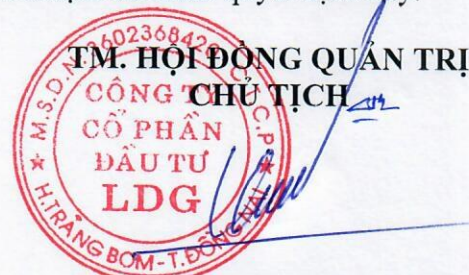 TM. HỘI ĐỒNG QUẢN TRỊ
CHỦ TỊCH
M.S.D.N: 3602368420 - C.T.C.P
CÔNG TY
CỔ PHẦN
ĐẦU TƯ
LDG
H.TRẢNG BOM - T.ĐỒNG NAI